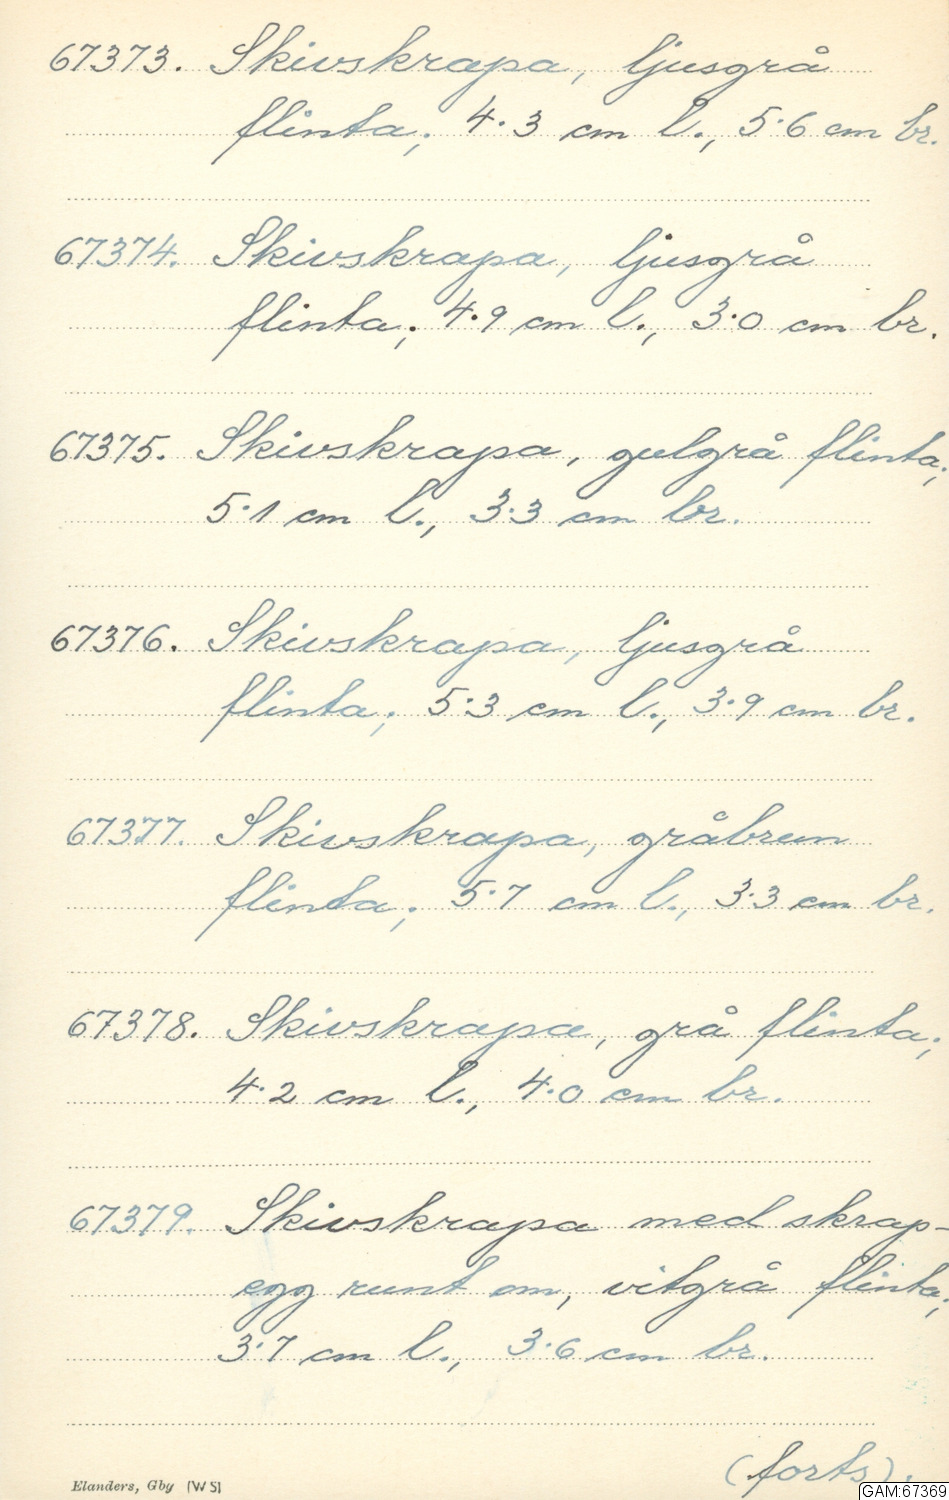 67373. Skivskrapa, ljusgrå
flinta; 4·3 cm l., 5·6 cm br.
67374. Skivskrapa, ljusgrå
flinta; 4·9 cm l., 3·0 cm br.
67375. Skivskrapa, gulgrå flinta;
5·1 cm l., 3·3 cm br.
67376. Skivskrapa, ljusgrå
flinta; 5·3 cm l., 3·9 cm br.
67377. Skivskrapa, gråbrun
flinta; 5·7 cm l., 3·3 cm br.
67378. Skivskrapa, grå flinta;
4·2 cm l., 4·0 cm br.
67379. Skivskrapa med skrap-
egg runt om, vitgrå flinta;
3·7 cm l., 3·6 cm br.
(forts).
Elanders, Gby [W S]
GAM:67369